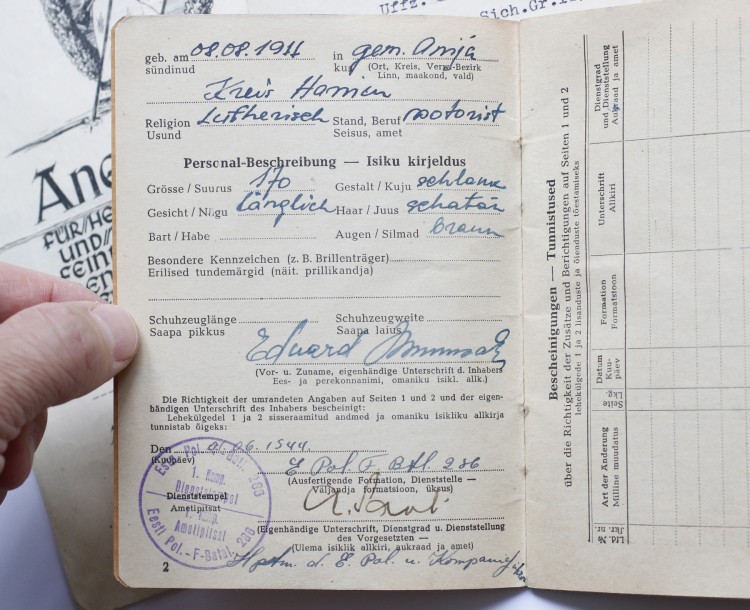 Uffz.
Sich.Gr.
Ang
FÜR/HE
UND/
FEIN
EN
geb. am 08.08.1911 in gem. Anija
sündinud kus (Ort, Kreis, Verw.-Bezirk
Linn, maakond, vald)
Kreis Harrien
Religion Lutherisch Stand, Beruf Motorist
Usund Seisus, amet
Personal-Beschreibung — Isiku kirjeldus
Grösse / Suurus 170 Gestalt / Kuju schlank
Gesicht / Nägu länglich Haar / Juus
Bart / Habe Augen / Silmad braun
Besondere Kennzeichen (z. B. Brillenträger)
Erilised tundemärgid (näit. prillikandja)
Schuhzeuglänge Schuhzeugweite
Saapa pikkus Saapa laius
Eduard
(Vor- u. Zuname, eigenhändige Unterschrift d. Inhabers
Ees- ja perekonnanimi, omaniku isikl. allk.)
Die Richtigkeit der umrandeten Angaben auf Seiten 1 und 2 und der eigen-
händigen Unterschrift des Inhabers bescheinigt:
Lehekülgede 1 ja 2 sisseraamitud andmed ja omaniku isikliku allkirja
tunnistab õigeks:
Den 01.06.1944
(Kuupäev) E. Pol. F. Btl. 286
(Ausfertigende Formation, Dienststelle —
Väljandja formatsioon, üksus)
Dienststempel
Ametipitsat
(Eigenhändige Unterschrift, Dienstgrad u. Dienststellung
des Vorgesetzten —
Ülema isiklik allkiri, aukraad ja amet)
Hptm. d. E. Pol. u.
1. Komp.
Dienststempel
1. Komp.
Ametipitsat
Eesti Pol.-F-Batal.
2
Bescheinigungen — Tunnistused
über die Richtigkeit der Zusätze und Berichtigungen auf Seiten 1 und 2
lehekülgede 1 ja 2 lisanduste ja õienduste tõestamiseks
Lfd. №
Jkr. nr.
Art der Änderung
Milline muudatus
Seite
Lkg.
Datum
Kuu-
päev
Formation
Formatsioon
Unterschrift
Allkiri
Dienstgrad
und Dienststellung
Aukraad ja amet